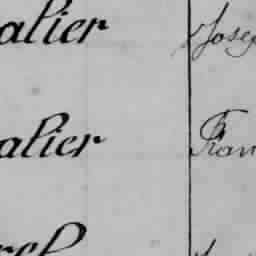 alier Jose
alier Fran
rel